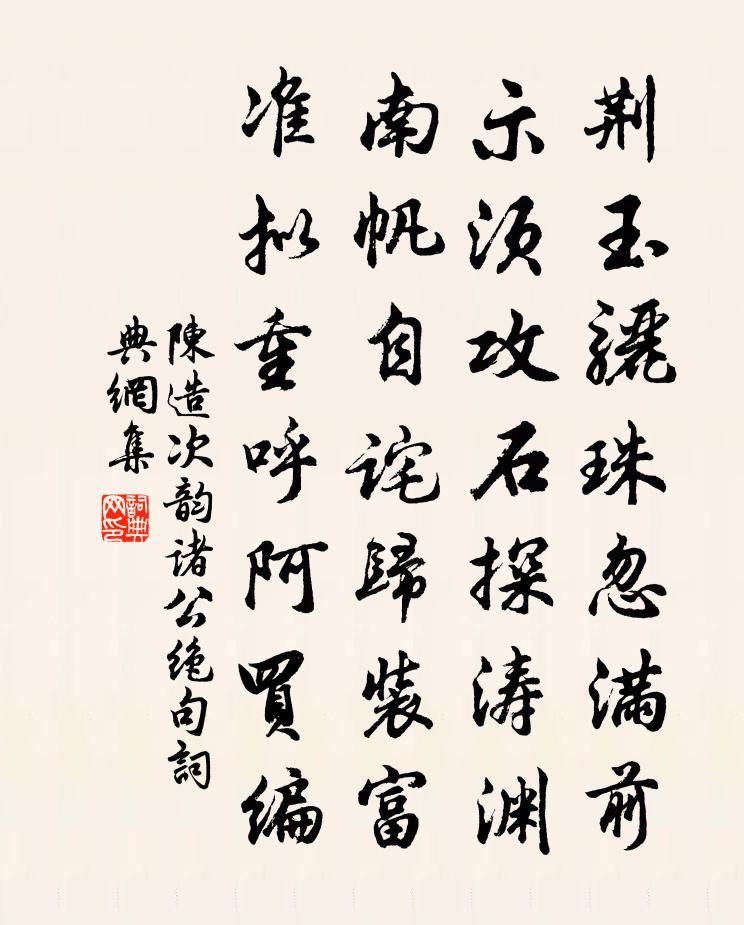 荆玉骊珠忽满前
示须攻石探涛渊
南帆自诧歸装富
准拟重呼阿買编
陳造次韵诸公绝句詞
典網集
詞典
网印